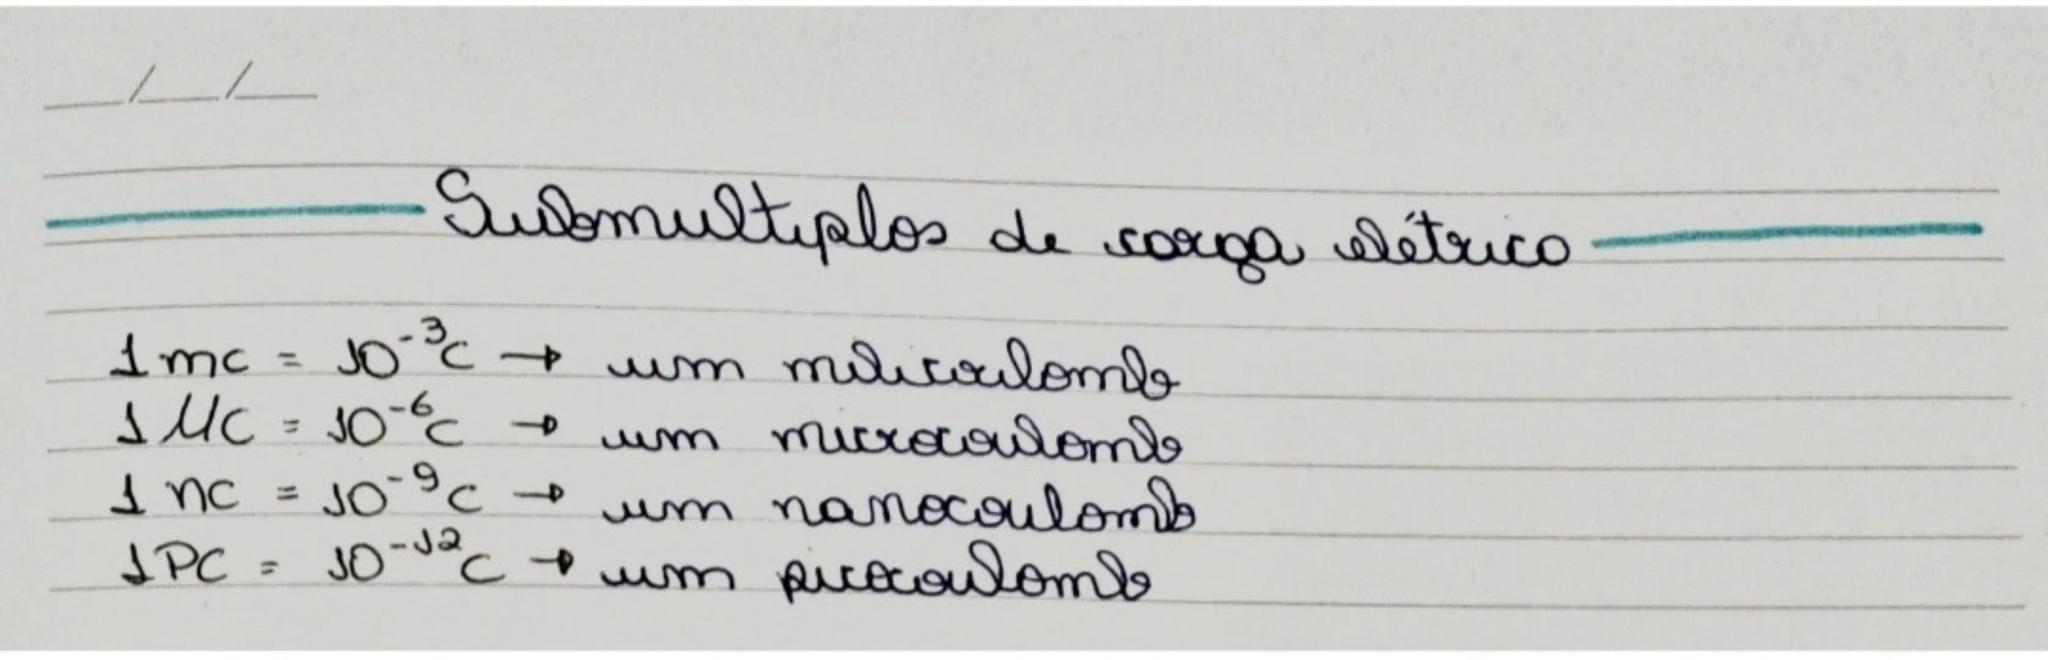 __/__/__
Submultiplos de carga elétrico
1 mc = 10⁻³c → um milicoulomb
1 μc = 10⁻⁶c → um microcoulomb
1 nc = 10⁻⁹c → um nanocoulomb
1 PC = 10⁻¹²c → um picocoulomb